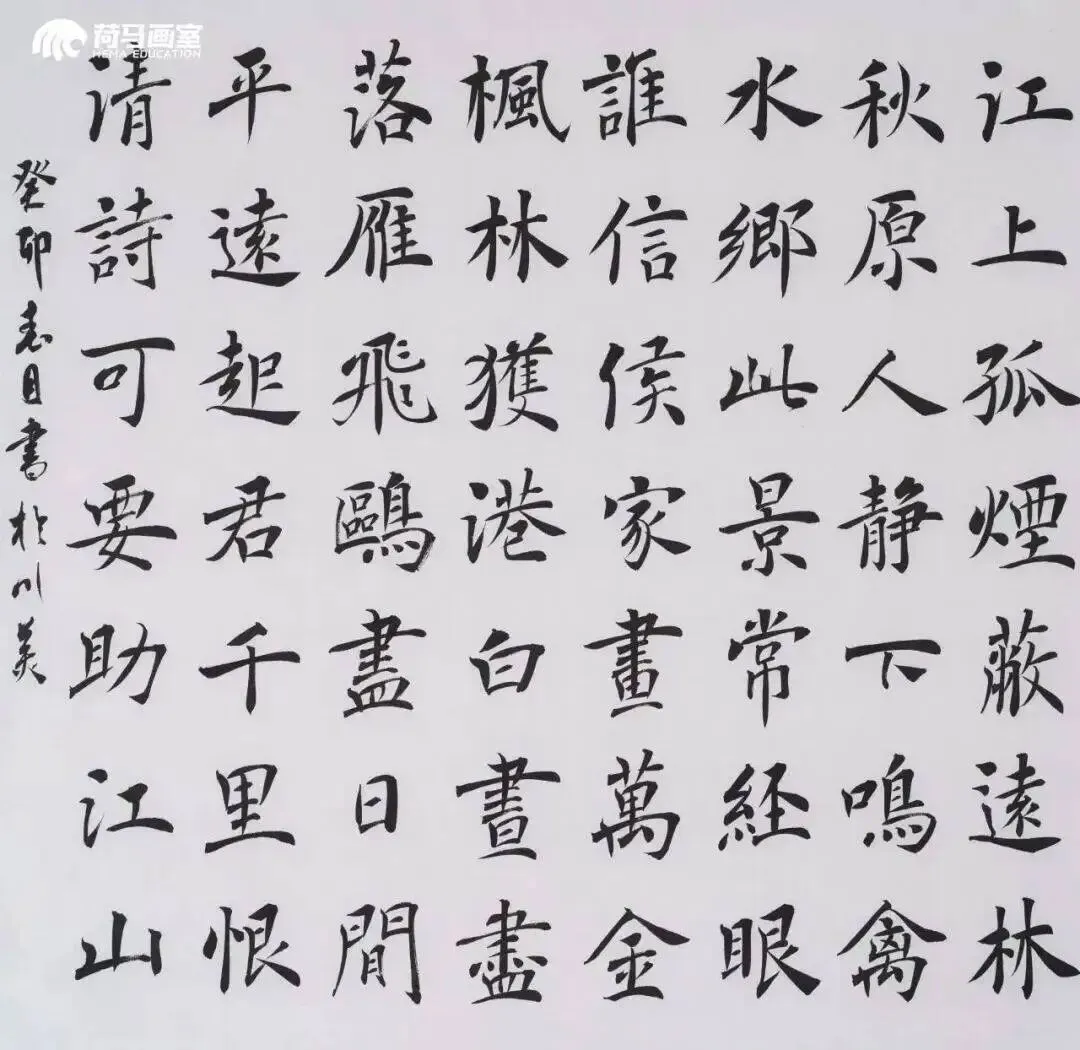 荷马画室
HEMA EDUCATION
江上孤煙蔽遠林
秋原人静下鳴禽
水鄉此景常経眼
誰信侯家畫萬金
楓林獲港白晝盡
落雁飛鷗盡日間
平遠起君千里恨
清詩可要助江山
癸卯春日書於川美